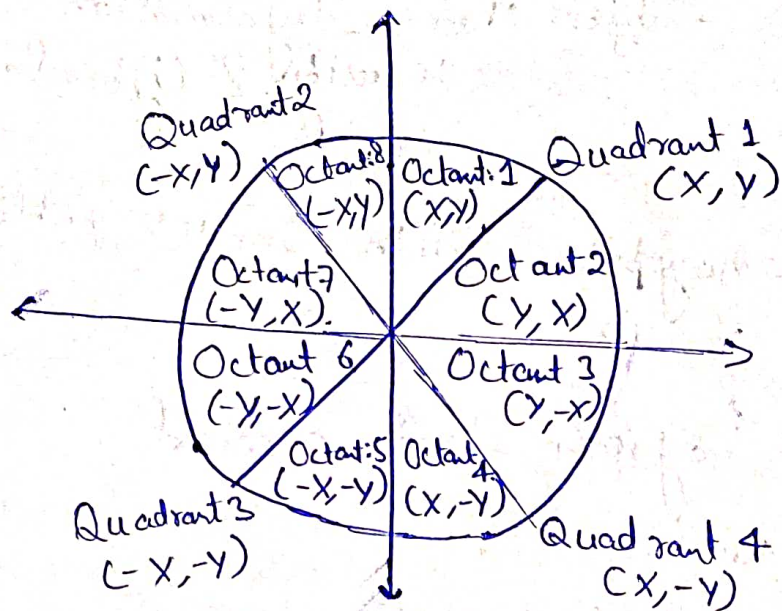 Quadrant 2
(-X, Y)
Quadrant 1
(X, Y)
Octant:8
(-X,Y)
Octant:1
(X,Y)
Octant7
(-Y, X).
Octant2
(Y, X)
Octant 6
(-Y,-X)
Octant 3
(Y,-X)
Octant:5
(-X,-Y)
Octant
4.
(X,-Y)
Quadrant3
(-X,-Y)
Quadrant 4
(X,-Y)